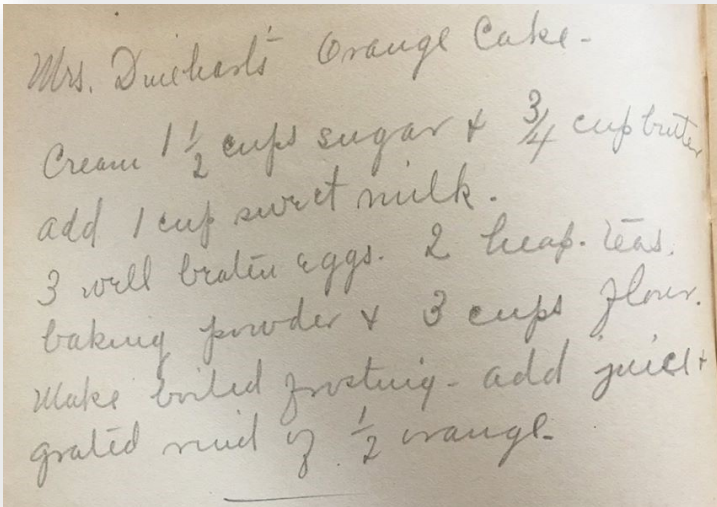 Mrs. Dinehart's Orange Cake -
Cream 1 1/2 cups sugar + 3/4 cup butter
add 1 cup sweet milk.
3 well beaten eggs. 2 heap. teas.
baking powder + 3 cups flour.
Make boiled frosting - add juice +
grated rind of 1/2 orange -